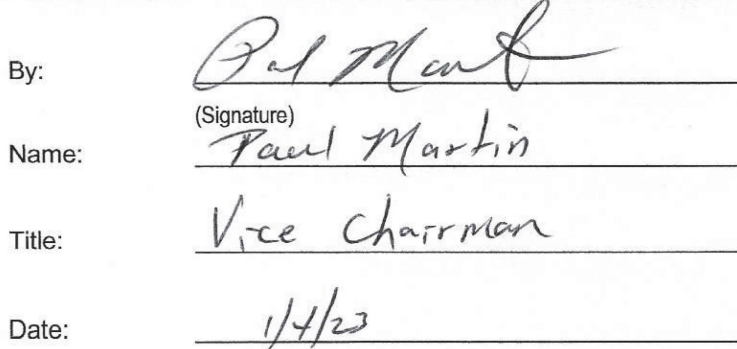 By: Paul Martin
(Signature)
Name: Paul Martin
Title: Vice Chairman
Date: 1/4/23